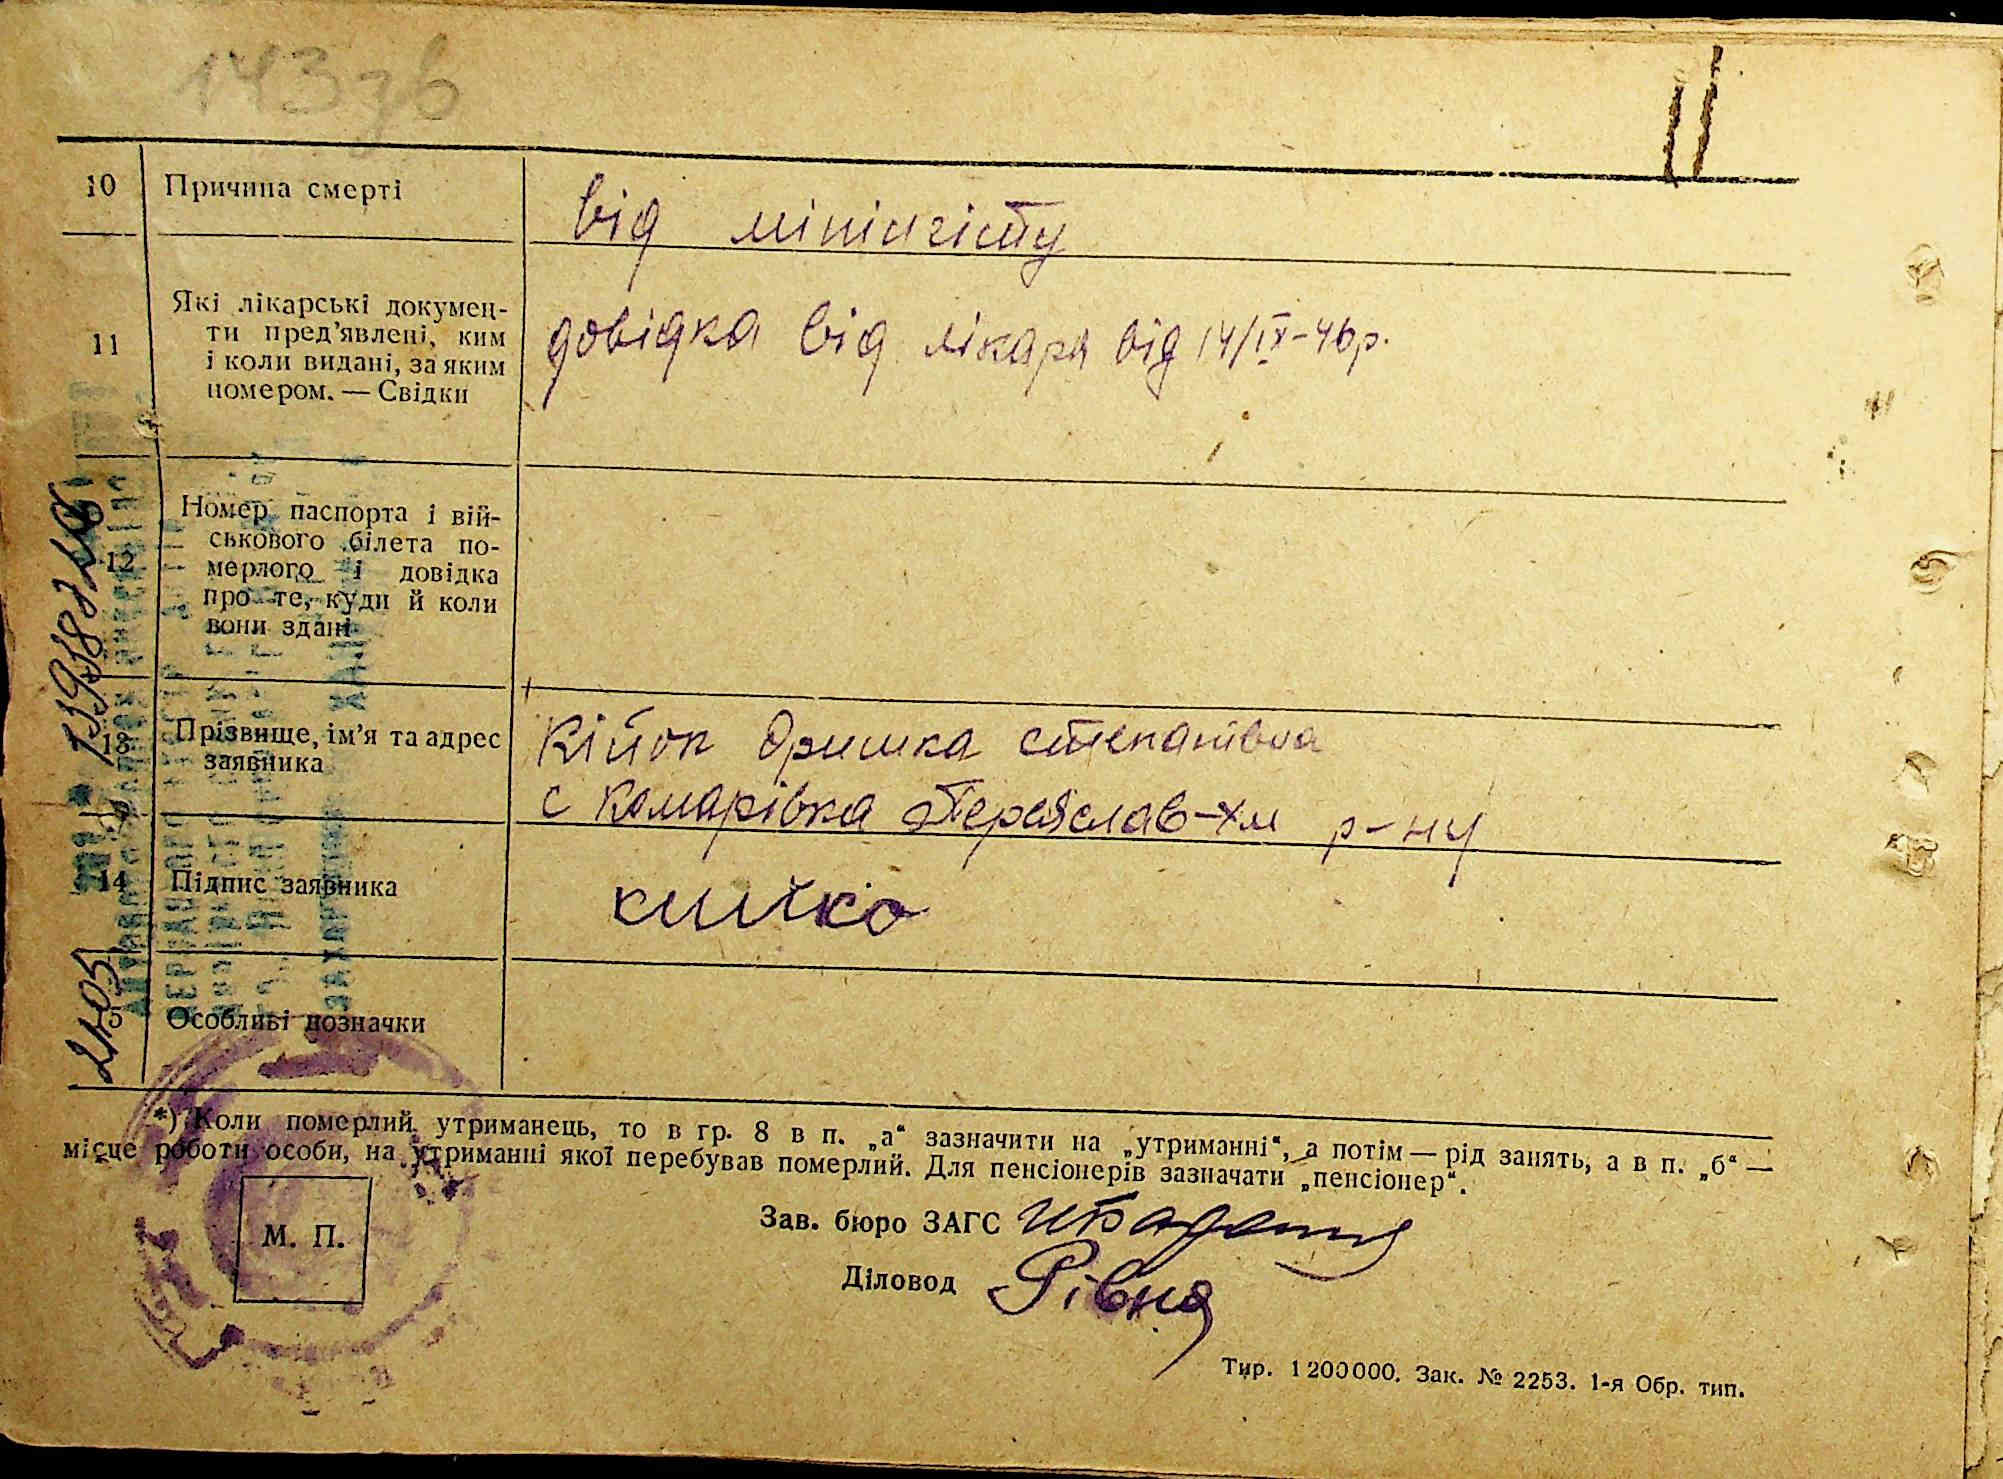 143зв
11
10 Причина смерті від мінінгіту
11 Які лікарські докумен-
ти пред'явлені, ким
і коли видані, за яким
номером. — Свідки
довідка від лікаря від 14/IX-46р.
12 Номер паспорта і вій-
ськового білета по-
мерлого і довідка
про те, куди й коли
вони здані
13 Прізвище, ім'я та адрес
заявника
Кійок Оришка степанівна
с Комарівка Переяслав-Хм р-ну
14 Підпис заявника
15 Особливі позначки
2405
*) Коли померлий утриманець, то в гр. 8 в п. „а“ зазначити на „утриманні“, а потім — рід занять, а в п. „б“ —
місце роботи особи, на утриманні якої перебував померлий. Для пенсіонерів зазначати „пенсіонер“.
М. П.
Зав. бюро ЗАГС
Діловод Рівна
Тир. 1200000. Зак. № 2253. 1-я Обр. тип.